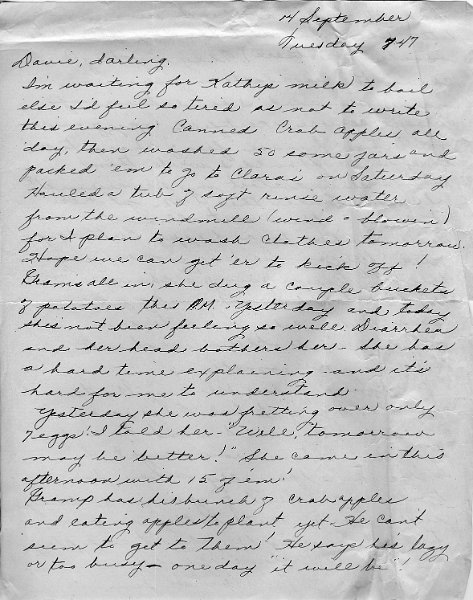 14 September
Tuesday 747
Davie, darling.
I'm waiting for Kathy's milk to boil
else I'd feel so tired as not to write
this evening Canned Crab apples all
day, then washed 50 some jars and
packed 'em to go to Clara's on Saturday
Hauled a tub of soft rinse water
from the windmill (wind a blowin)
for I plan to wash clothes tomorrow.
Hope we can get 'er to kick off!
Grams all in, she dug a couple buckets
of potatoes this P.M. Yesterday and today
she's not been feeling so well Diarrhea
and her head bothers her - She has
a hard time explaining - and it's
hard for me to understand.
Yesterday she was fretting over only
7 eggs! I told her - "Well, tomorrow
may be better!" She came in this
afternoon with 15 of 'em!
Gramp has his bunch of crabapples
and eating apples to plant yet - He can't
seem to get to them! He says his lazy
or too busy - one day "it will be"!